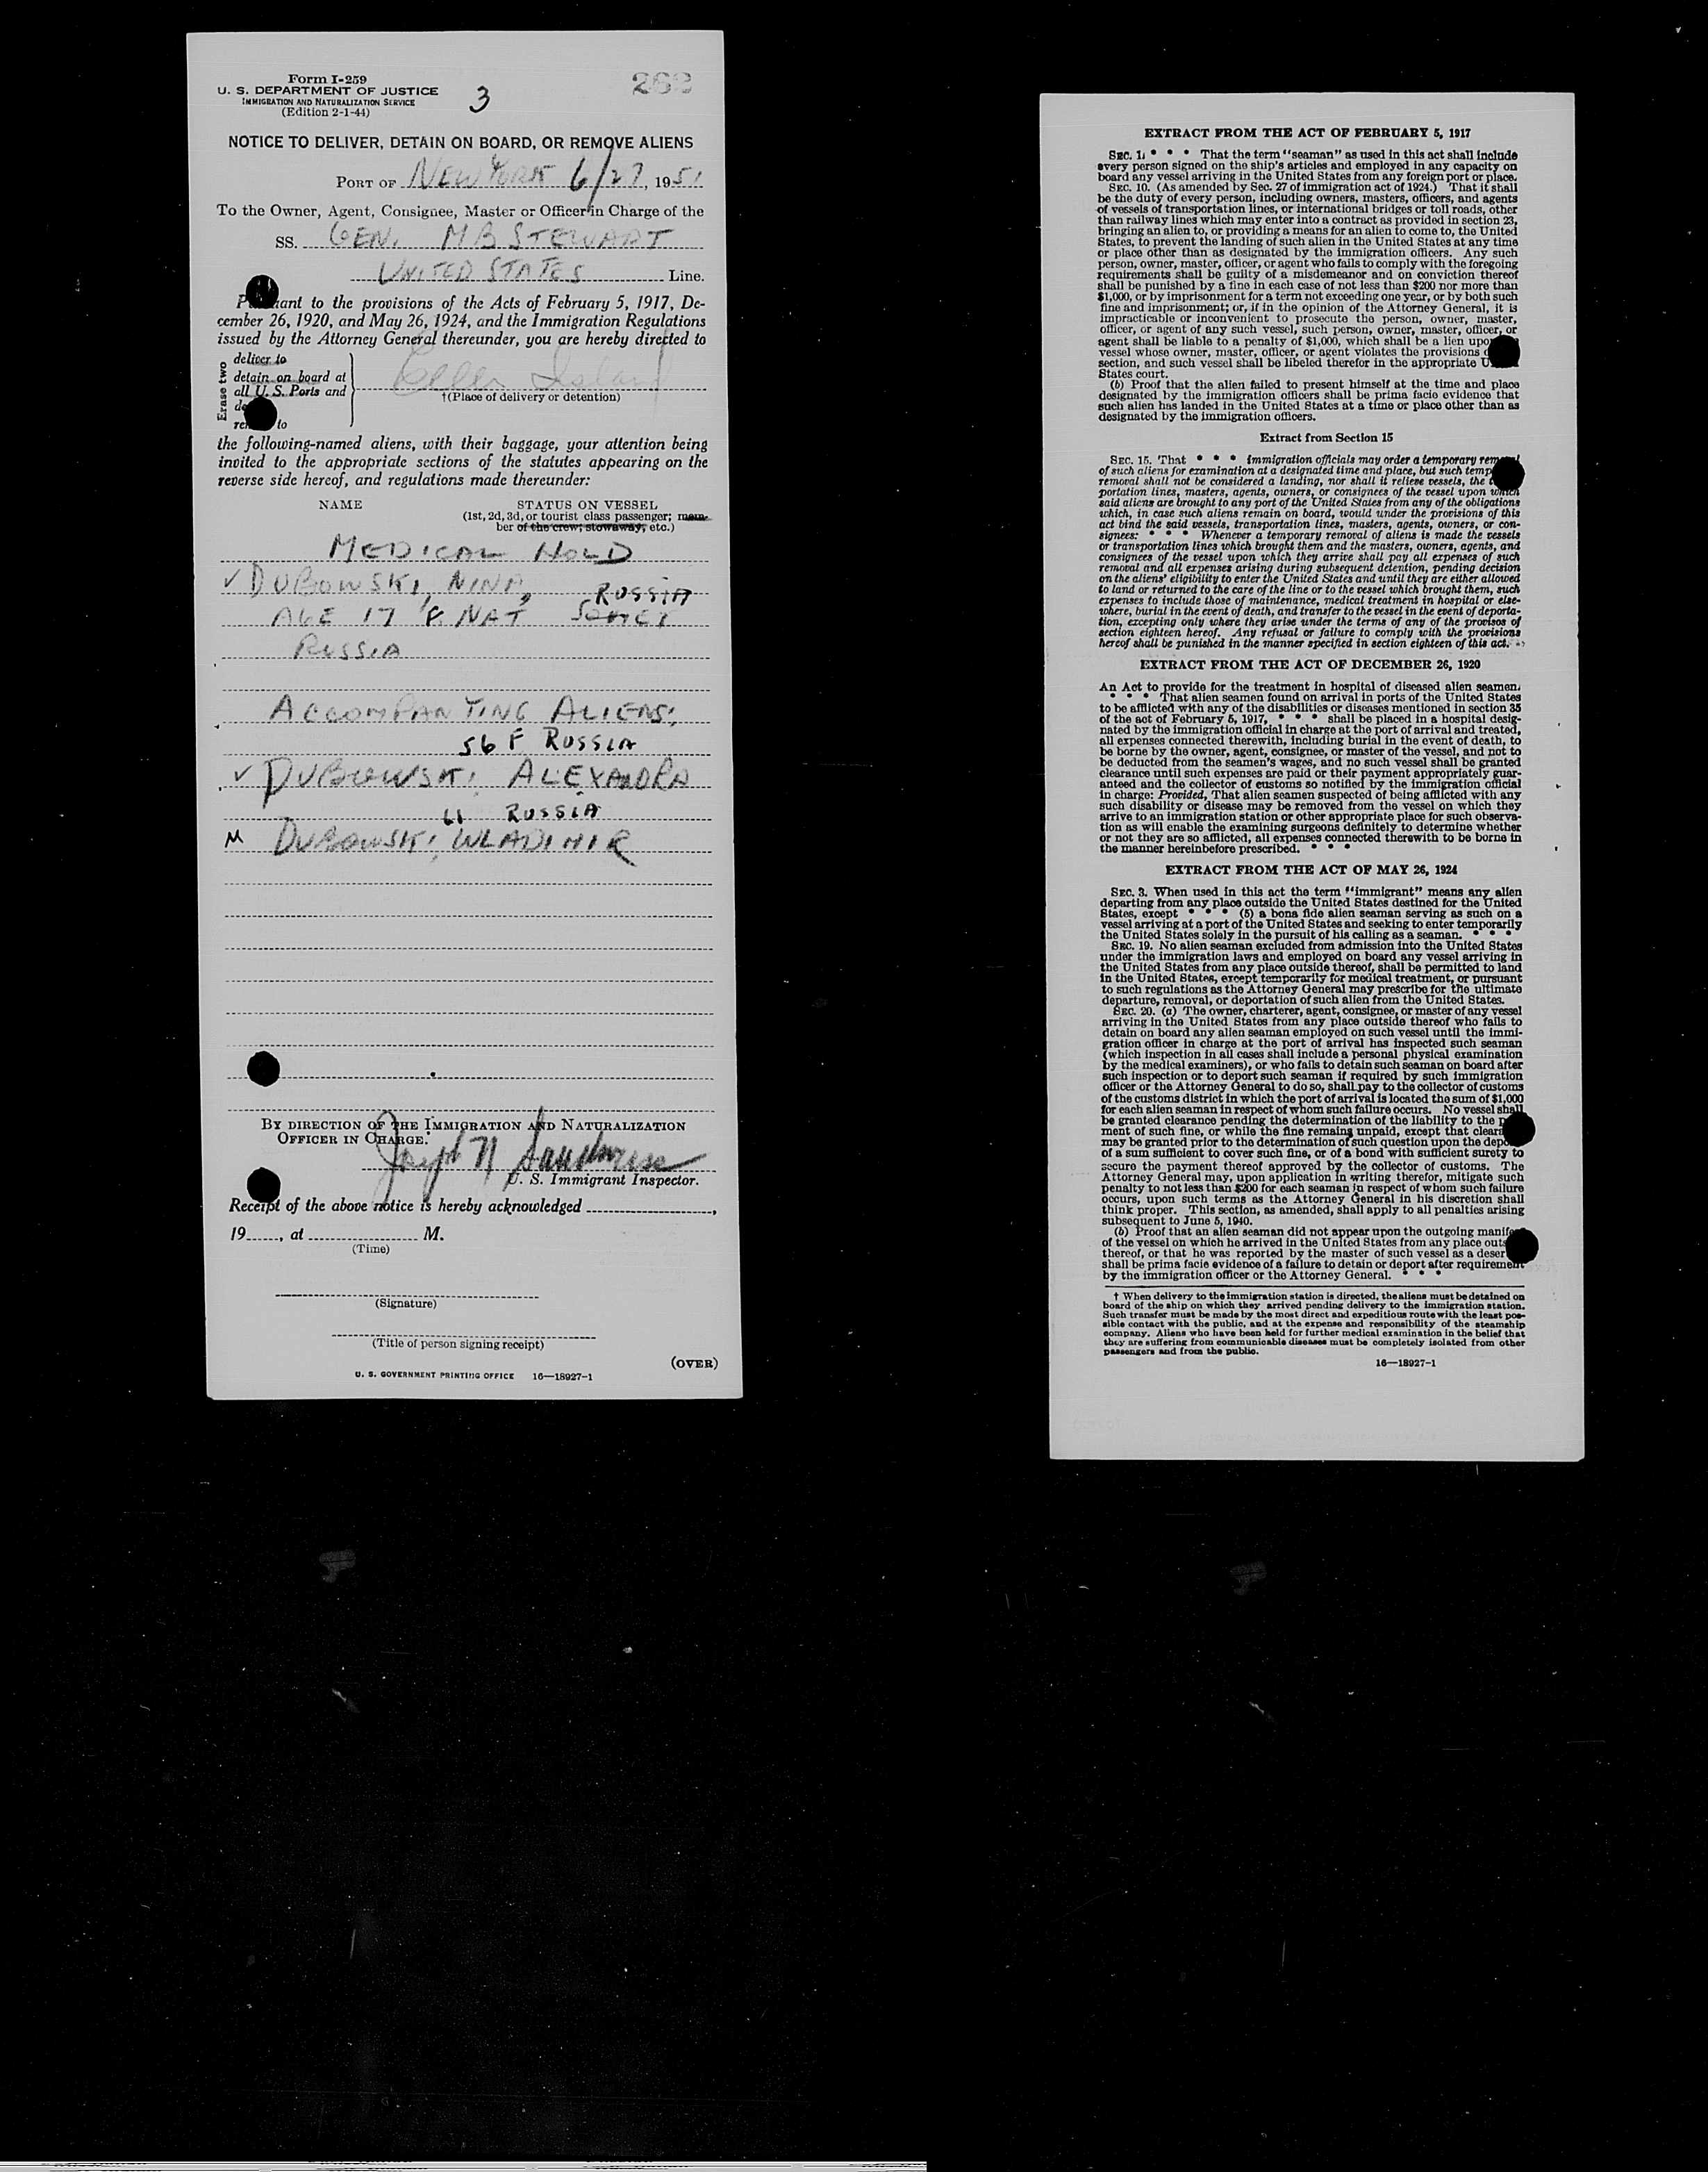 Form I-259
U. S. DEPARTMENT OF JUSTICE
IMMIGRATION AND NATURALIZATION SERVICE
(Edition 2-1-44)
3
NOTICE TO DELIVER, DETAIN ON BOARD, OR REMOVE ALIENS
PORT OF NEW YORK 6/27, 1951
To the Owner, Agent, Consignee, Master or Officer in Charge of the
SS. GEN. M B STEWART
UNITED STATES Line.
to the provisions of the Acts of February 5, 1917, De-
cember 26, 1920, and May 26, 1924, and the Immigration Regulations
issued by the Attorney General thereunder, you are hereby directed to
Erase two
deliver to
detain on board at
all U. S. Ports and
to
Ellis Island
†(Place of delivery or detention)
the following-named aliens, with their baggage, your attention being
invited to the appropriate sections of the statutes appearing on the
reverse side hereof, and regulations made thereunder:
NAME STATUS ON VESSEL
(1st, 2d, 3d, or tourist class passenger; mem-
ber of the crew; stowaway, etc.)
MEDICAL HOLD
✓ DUBOWSKI, NINA, RUSSIA
AGE 17 F NAT SOVIET
RUSSIA
ACCOMPANYING ALIENS:
56 F RUSSIA
✓ DUBOWSKI ALEXANDRA
RUSSIA
M DUBOWSKI, WLADIMIR
BY DIRECTION OF THE IMMIGRATION AND NATURALIZATION
OFFICER IN CHARGE.
Joseph N
U. S. Immigrant Inspector.
Receipt of the above notice is hereby acknowledged ,
19 , at M.
(Time)
(Signature)
(Title of person signing receipt)
(OVER)
U. S. GOVERNMENT PRINTING OFFICE 16—18927-1
EXTRACT FROM THE ACT OF FEBRUARY 5, 1917
SEC. 1. * * * That the term "seaman" as used in this act shall include
every person signed on the ship's articles and employed in any capacity on
board any vessel arriving in the United States from any foreign port or place.
SEC. 10. (As amended by Sec. 27 of immigration act of 1924.) That it shall
be the duty of every person, including owners, masters, officers, and agents
of vessels of transportation lines, or international bridges or toll roads, other
than railway lines which may enter into a contract as provided in section 23,
bringing an alien to, or providing a means for an alien to come to, the United
States, to prevent the landing of such alien in the United States at any time
or place other than as designated by the immigration officers. Any such
person, owner, master, officer, or agent who fails to comply with the foregoing
requirements shall be guilty of a misdemeanor and on conviction thereof
shall be punished by a fine in each case of not less than $200 nor more than
$1,000, or by imprisonment for a term not exceeding one year, or by both such
fine and imprisonment; or, if in the opinion of the Attorney General, it is
impracticable or inconvenient to prosecute the person, owner, master,
officer, or agent of any such vessel, such person, owner, master, officer, or
agent shall be liable to a penalty of $1,000, which shall be a lien upon
vessel whose owner, master, officer, or agent violates the provisions
section, and such vessel shall be libeled therefor in the appropriate
States court.
(b) Proof that the alien failed to present himself at the time and place
designated by the immigration officers shall be prima facie evidence that
such alien has landed in the United States at a time or place other than as
designated by the immigration officers.
Extract from Section 15
SEC. 15. That * * * immigration officials may order a temporary removal
of such aliens for examination at a designated time and place, but such
removal shall not be considered a landing, nor shall it relieve vessels, the
portation lines, masters, agents, owners, or consignees of the vessel upon which
said aliens are brought to any port of the United States from any of the obligations
which, in case such aliens remain on board, would under the provisions of this
act bind the said vessels, transportation lines, masters, agents, owners, or con-
signees: * * * Whenever a temporary removal of aliens is made the vessels
or transportation lines which brought them and the masters, owners, agents, and
consignees of the vessel upon which they arrive shall pay all expenses of such
removal and all expenses arising during subsequent detention, pending decision
on the aliens' eligibility to enter the United States and until they are either allowed
to land or returned to the care of the line or to the vessel which brought them, such
expenses to include those of maintenance, medical treatment in hospital or else-
where, burial in the event of death, and transfer to the vessel in the event of deporta-
tion, excepting only where they arise under the terms of any of the provisos of
section eighteen hereof. Any refusal or failure to comply with the provisions
hereof shall be punished in the manner specified in section eighteen of this act.
EXTRACT FROM THE ACT OF DECEMBER 26, 1920
An Act to provide for the treatment in hospital of diseased alien seamen.
* * * That alien seamen found on arrival in ports of the United States
to be afflicted with any of the disabilities or diseases mentioned in section 35
of the act of February 5, 1917, * * * shall be placed in a hospital desig-
nated by the immigration official in charge at the port of arrival and treated,
all expenses connected therewith, including burial in the event of death, to
be borne by the owner, agent, consignee, or master of the vessel, and not to
be deducted from the seamen's wages, and no such vessel shall be granted
clearance until such expenses are paid or their payment appropriately guar-
anteed and the collector of customs so notified by the immigration official
in charge: Provided, That alien seamen suspected of being afflicted with any
such disability or disease may be removed from the vessel on which they
arrive to an immigration station or other appropriate place for such observa-
tion as will enable the examining surgeons definitely to determine whether
or not they are so afflicted, all expenses connected therewith to be borne in
the manner hereinbefore prescribed. * * *
EXTRACT FROM THE ACT OF MAY 26, 1924
SEC. 3. When used in this act the term "immigrant" means any alien
departing from any place outside the United States destined for the United
States, except * * * (5) a bona fide alien seaman serving as such on a
vessel arriving at a port of the United States and seeking to enter temporarily
the United States solely in the pursuit of his calling as a seaman. * * *
SEC. 19. No alien seaman excluded from admission into the United States
under the immigration laws and employed on board any vessel arriving in
the United States from any place outside thereof, shall be permitted to land
in the United States, except temporarily for medical treatment, or pursuant
to such regulations as the Attorney General may prescribe for the ultimate
departure, removal, or deportation of such alien from the United States.
SEC. 20. (a) The owner, charterer, agent, consignee, or master of any vessel
arriving in the United States from any place outside thereof who fails to
detain on board any alien seaman employed on such vessel until the immi-
gration officer in charge at the port of arrival has inspected such seaman
(which inspection in all cases shall include a personal physical examination
by the medical examiners), or who fails to detain such seaman on board after
such inspection or to deport such seaman if required by such immigration
officer or the Attorney General to do so, shall pay to the collector of customs
of the customs district in which the port of arrival is located the sum of $1,000
for each alien seaman in respect of whom such failure occurs. No vessel shall
be granted clearance pending the determination of the liability to the
ment of such fine, or while the fine remains unpaid, except that
may be granted prior to the determination of such question upon the
of a sum sufficient to cover such fine, or of a bond with sufficient surety to
secure the payment thereof approved by the collector of customs. The
Attorney General may, upon application in writing therefor, mitigate such
penalty to not less than $200 for each seaman in respect of whom such failure
occurs, upon such terms as the Attorney General in his discretion shall
think proper. This section, as amended, shall apply to all penalties arising
subsequent to June 5, 1940.
(b) Proof that an alien seaman did not appear upon the outgoing
of the vessel on which he arrived in the United States from any place
thereof, or that he was reported by the master of such vessel as a
shall be prima facie evidence of a failure to detain or deport after requirement
by the immigration officer or the Attorney General. * * *
† When delivery to the immigration station is directed, the aliens must be detained on
board of the ship on which they arrived pending delivery to the immigration station.
Such transfer must be made by the most direct and expeditious route with the least pos-
sible contact with the public, and at the expense and responsibility of the steamship
company. Aliens who have been held for further medical examination in the belief that
they are suffering from communicable diseases must be completely isolated from other
passengers and from the public.
16—18927-1